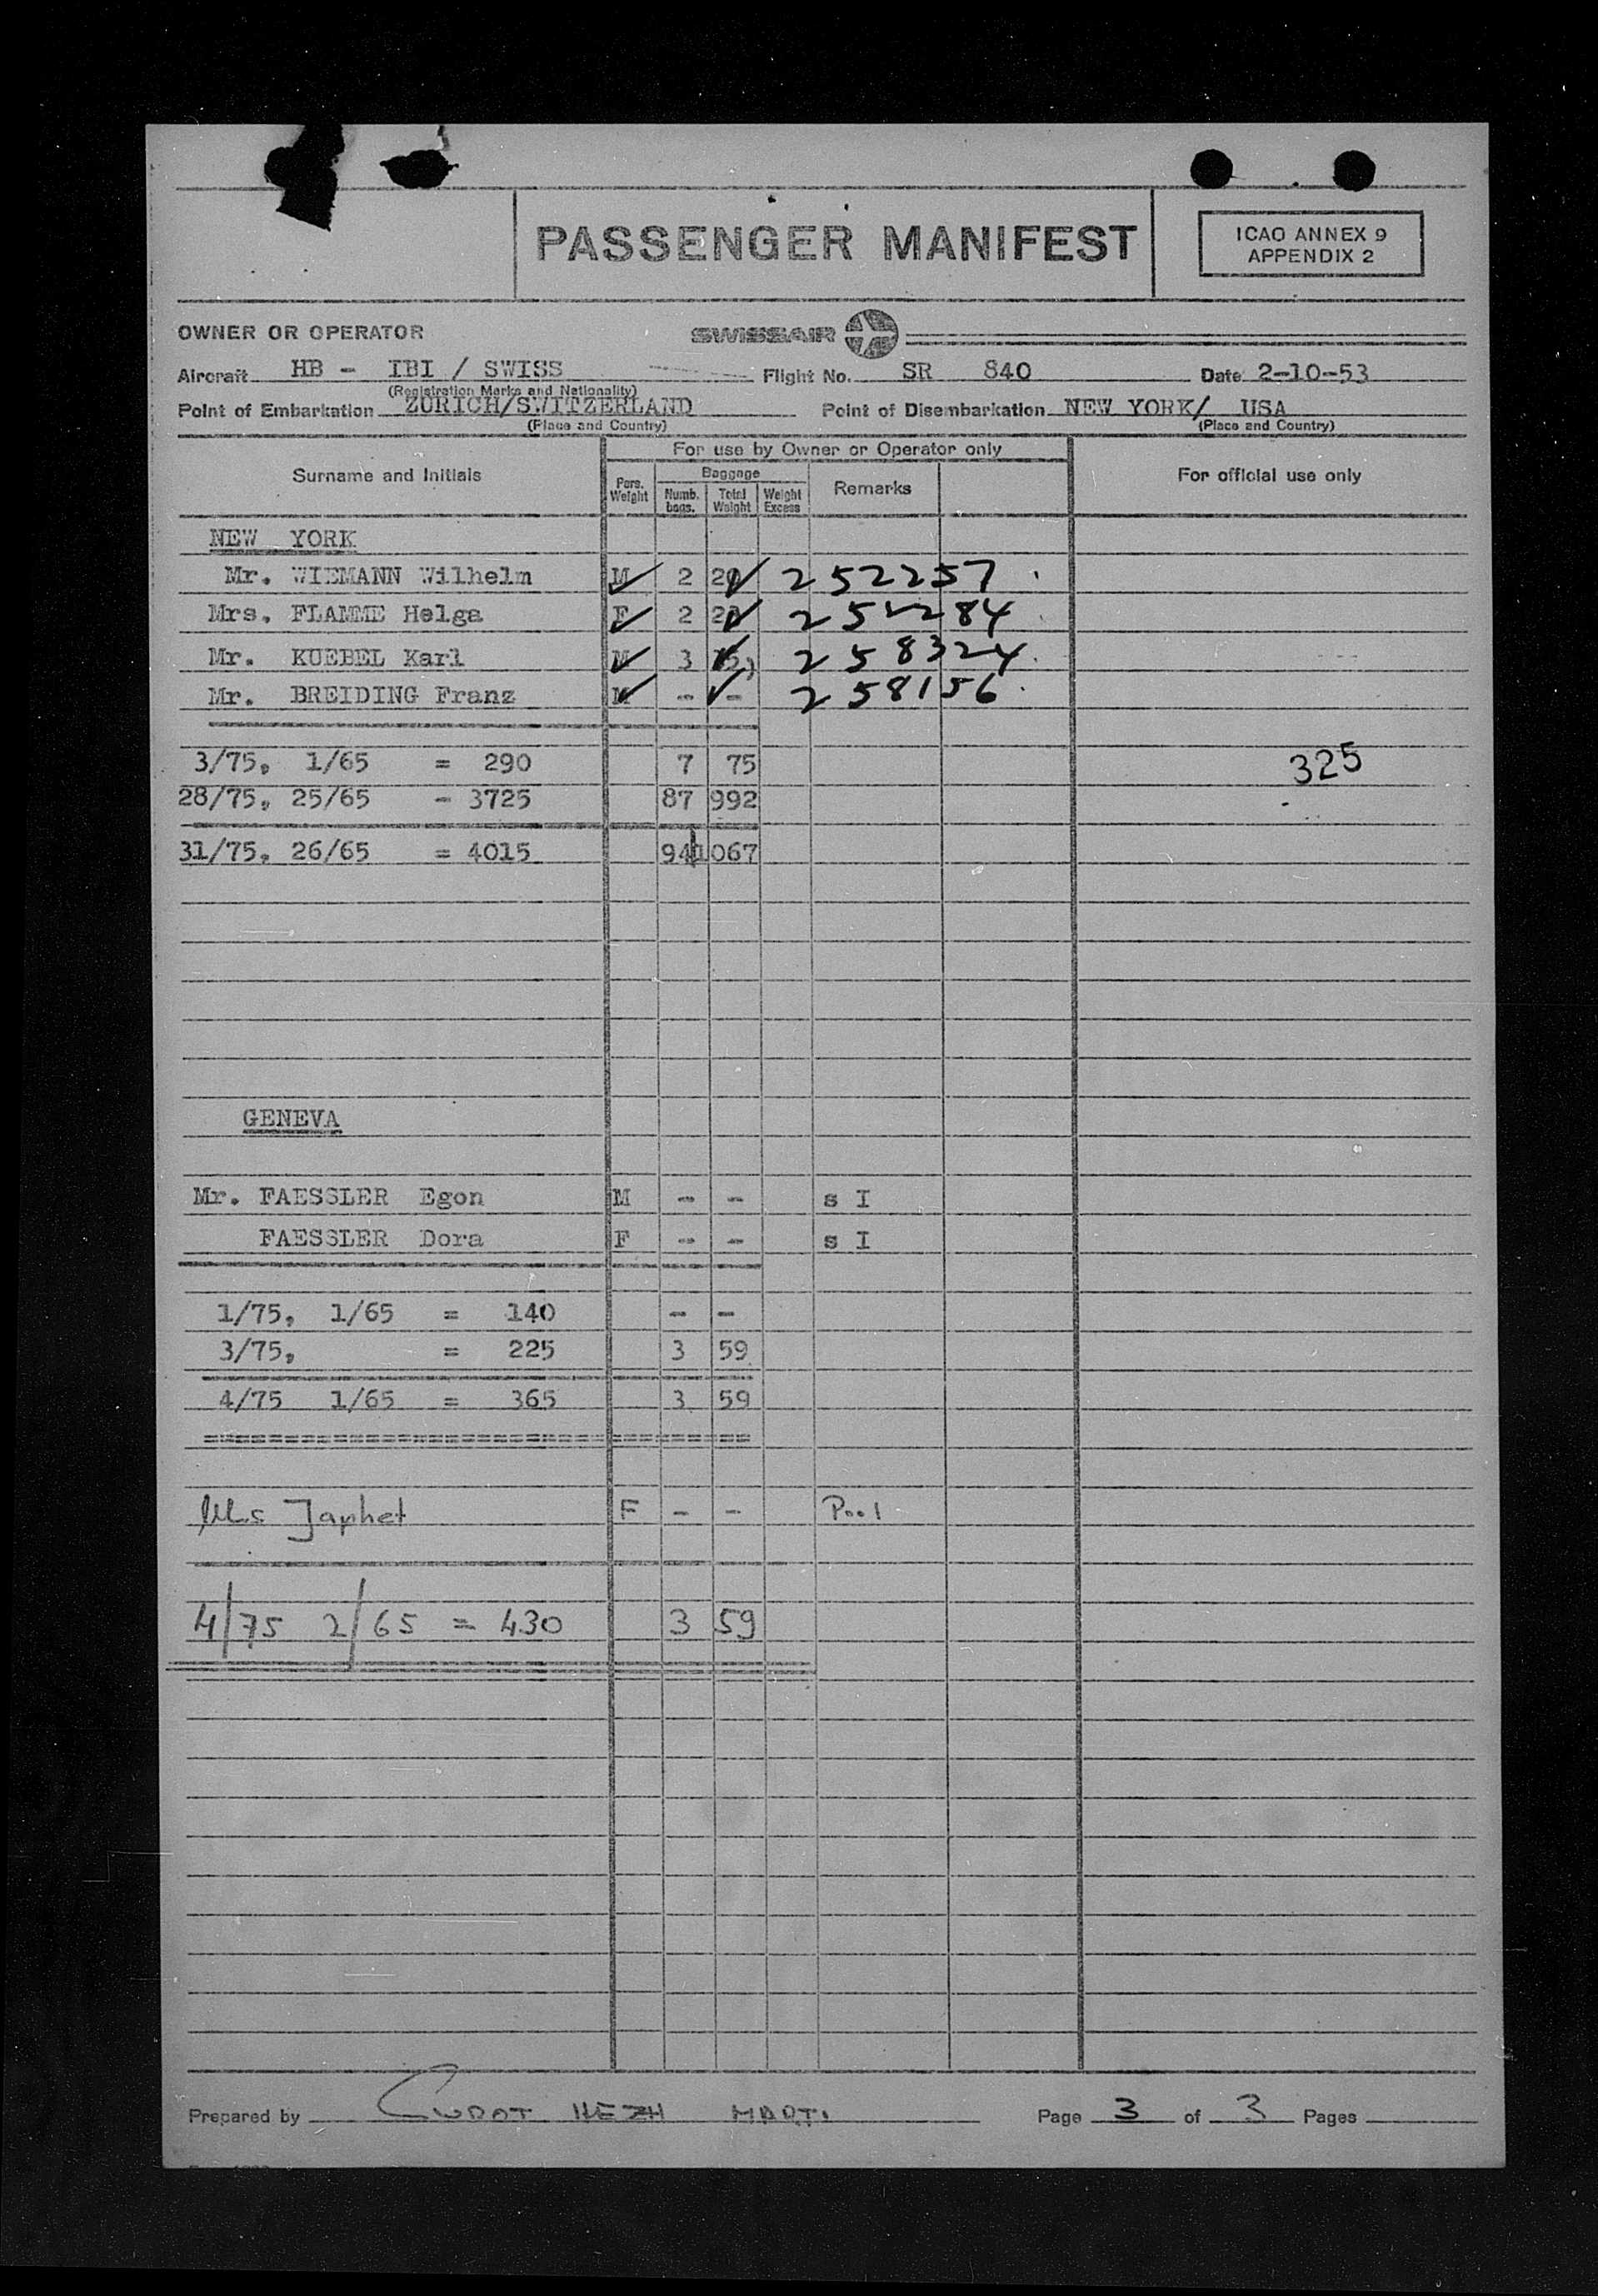 PASSENGER MANIFEST
ICAO ANNEX 9
APPENDIX 2
OWNER OR OPERATOR SWISSAIR
Aircraft HB - IBI / SWISS Flight No. SR 840 Date 2-10-53
(Registration Marks and Nationality)
Point of Embarkation ZURICH/SWITZERLAND Point of Disembarkation NEW YORK/ USA
(Place and Country) (Place and Country)
For use by Owner or Operator only
Surname and Initials Pers. Weight Baggage Remarks For official use only
Numb. bags. Total Weight Weight Excess
NEW YORK
Mr. WIEMANN Wilhelm M 2 20 252257
Mrs. FLAMME Helga F 2 252284
Mr. KUEBEL Karl M 3 258324
Mr. BREIDING Franz M - - 258156
3/75, 1/65 = 290 7 75 325
28/75, 25/65 - 3725 87 992
31/75, 26/65 = 4015 94 1067
GENEVA
Mr. FAESSLER Egon M - - s I
FAESSLER Dora F - - s I
1/75, 1/65 = 140 - -
3/75, = 225 3 59
4/75 1/65 = 365 3 59
==================================
Japhet F - - Pool
4/75 2/65 = 430 3 59
Prepared by MARTI Page 3 of 3 Pages